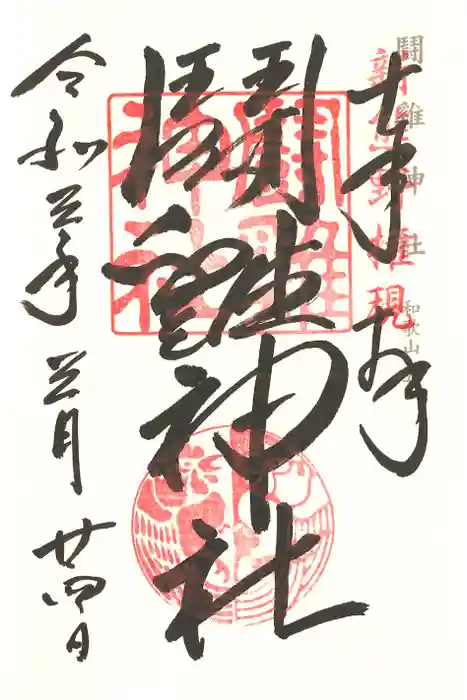 鬪雞神社 和歌山
新熊野權現
奉拝
鬪雞神社
鬪雞神社
令和三年 三月 廿四日